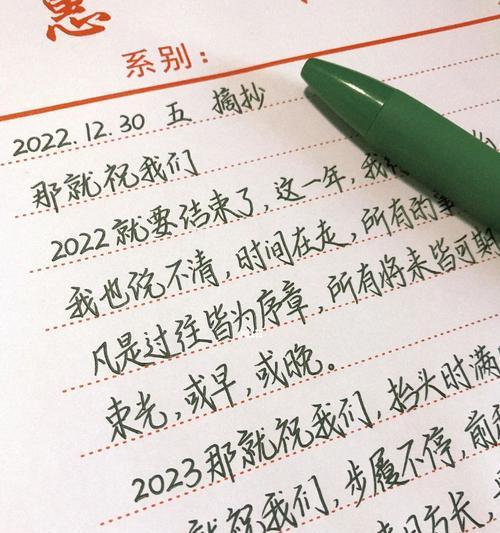 系别：
2022.12.30 五 摘抄
那就祝我们
2022就要结束了，这一年，我
我也说不清，时间在走，所有的事
凡是过往皆为序章，所有将来皆可期
束光，或早，或晚。
2023那就祝我们，抬头时满
就祝我们，步履不停，前
来日方长，